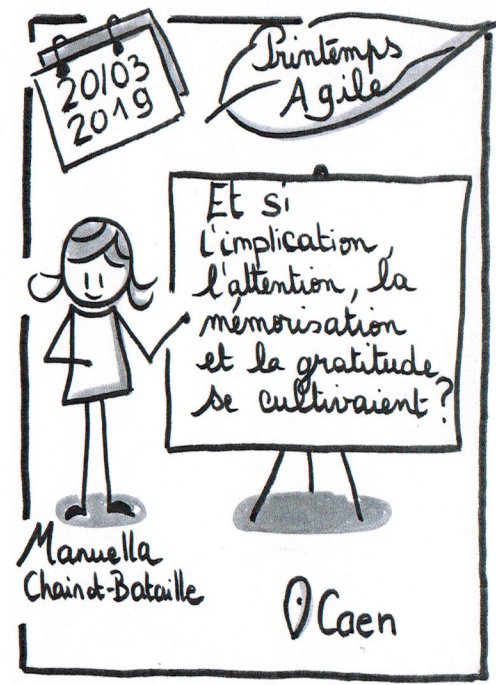 20/03
2019
Printemps
Agile
Et si
l'implication,
l'attention, la
mémorisation
et la gratitude
se cultivaient?
Manuella
Chainot-Bataille
Caen